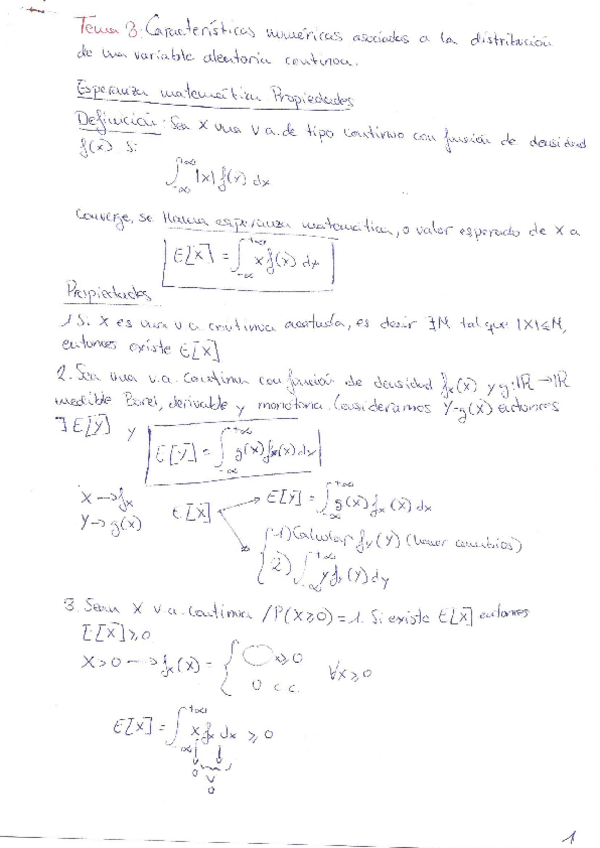 Tema 3: Características numéricas asociadas a la distribución
de una variable aleatoria continua.
Esperanza matemática Propiedades
Definición: Sea X una v.a. de tipo continuo con función de densidad
f(x) si
∫_{-∞}^{+∞} |x| f(x) dx
converge, se llama esperanza matemática, o valor esperado de X a
E[X] = ∫_{-∞}^{+∞} x f(x) dx
Propiedades
1. Si X es una v.a continua acotada, es decir ∃M tal que |X|≤M,
entonces existe E[X]
2. Sea una v.a. continua con función de densidad fx(x) y g: ℝ → ℝ
medible Borel, derivable y monótona. Consideramos Y=g(X) entonces
∃ E[Y] y E[Y] = ∫_{-∞}^{+∞} g(x) fx(x) dx
X → fx
Y → g(x)
E[X]
E[Y] = ∫_{-∞}^{+∞} g(x) fx(x) dx
1) Calcular fy(y) (hacer cambios)
2) ∫_{-∞}^{+∞} y fy(y) dy
3. Sean X v.a. continua / P(X≥0) = 1. Si existe E[X] entonces
E[X] ≥ 0
X>0 → fx(x) = { x≥0
0 c.c. ∀x≥0
E[X] = ∫_{-∞}^{+∞} x fx dx ≥ 0
v v
0 v
0
1